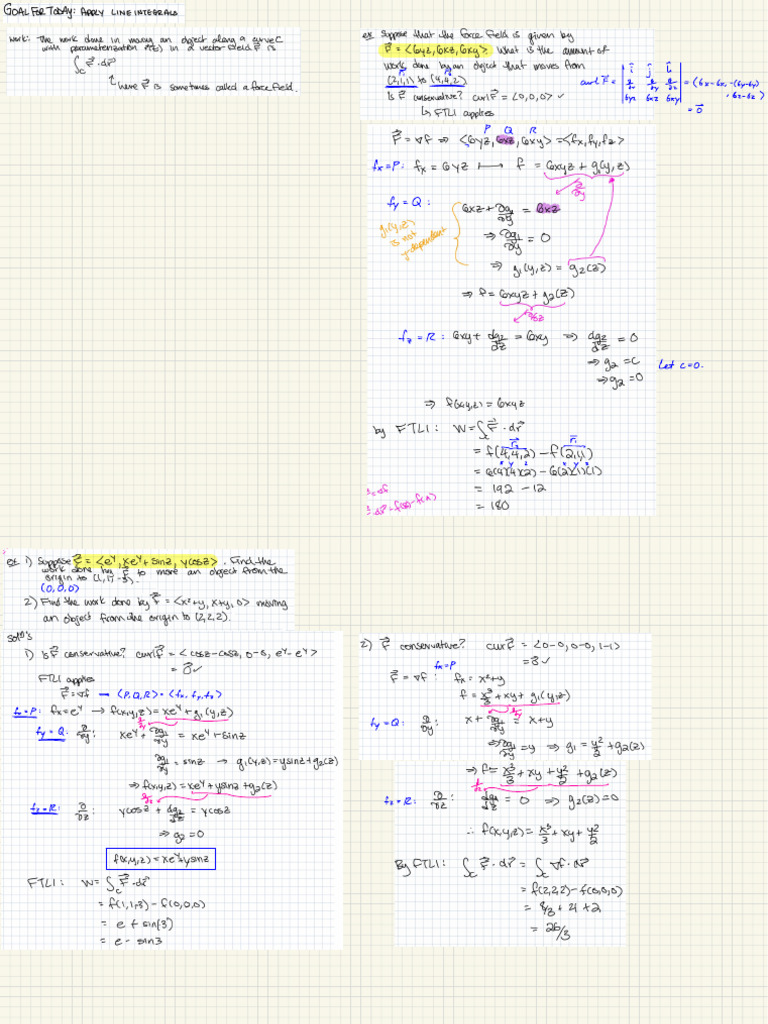 GOAL FOR TODAY: APPLY LINE INTEGRALS
work: The work done in moving an object along a curve C
with parameterization r⃗(t) in a vector field F⃗ is
∫_C F⃗ · dr⃗
↳ where F⃗ is sometimes called a force field.
ex. Suppose that the force field is given by
F⃗ = <6yz, 6xz, 6xy>. What is the amount of
work done by an object that moves from
(2,1,1) to (4,4,2).
Is F⃗ conservative? curl F⃗ = <0,0,0> ✓
↳ FTLI applies
F⃗ = ∇f ⇒ <6yz, 6xz, 6xy> = <fx, fy, fz>
P Q R
fx = P: fx = 6yz ⟼ f = 6xyz + g₁(y,z)
∂/∂y
fy = Q: 6xz + ∂g₁/∂y = 6xz
g₁(y,z)
is not
y-dependent
⇒ ∂g₁/∂y = 0
⇒ g₁(y,z) = g₂(z)
⇒ f = 6xyz + g₂(z)
∂/∂z
fz = R: 6xy + dg₂/dz = 6xy ⇒ dg₂/dz = 0
⇒ g₂ = C
Let c=0.
⇒ g₂ = 0
⇒ f(x,y,z) = 6xyz
by FTLI: W = ∫_C F⃗ · dr⃗
= f(4,4,2) − f(2,1,1)
= 6(4)(4)(2) − 6(2)(1)(1)
= 192 − 12
= 180
ex 1) Suppose F⃗ = <e^y, xe^y + sinz, ycosz>. Find the
work done by F⃗ to move an object from the
origin to
(0,0,0)
2) Find the work done by F⃗ = <x²+y, x+y, 0> moving
an object from the origin to (2,2,2).
sol'n's
1) Is F⃗ conservative? curl F⃗ = <cosz−cosz, 0−0, e^y−e^y>
= 0⃗ ✓
FTLI applies
F⃗ = ∇f → <P,Q,R> = <fx, fy, fz>
fx = P: fx = e^y → f(x,y,z) = xe^y + g₁(y,z)
fy = Q: ∂/∂y: xe^y + ∂g₁/∂y = xe^y + sinz
∂g₁/∂y = sinz → g₁(y,z) = ysinz + g₂(z)
⇒ f(x,y,z) = xe^y + ysinz + g₂(z)
fz = R: ∂/∂z: ycosz + dg₂/dz = ycosz
⇒ g₂ = 0
f(x,y,z) = xe^y + ysinz
FTLI: W = ∫_C F⃗ · dr⃗
= f(1,1,-3) − f(0,0,0)
= e + sin(-3)
= e − sin3
2) F⃗ conservative? curl F⃗ = <0−0, 0−0, 1−1>
= 0⃗ ✓
fx = P
F⃗ = ∇f: fx = x²+y
f = x³/3 + xy + g₁(y,z)
fy = Q: ∂/∂y: x + ∂g₁/∂y = x+y
⇒ ∂g₁/∂y = y ⇒ g₁ = y²/2 + g₂(z)
⇒ f = x³/3 + xy + y²/2 + g₂(z)
fz = R: ∂/∂z: dg₂/dz = 0 ⇒ g₂(z) = 0
∴ f(x,y,z) = x³/3 + xy + y²/2
By FTLI: ∫_C F⃗ · dr⃗ = ∫_C ∇f · dr⃗
= f(2,2,2) − f(0,0,0)
= 8/3 + 4 + 2
= 26/3